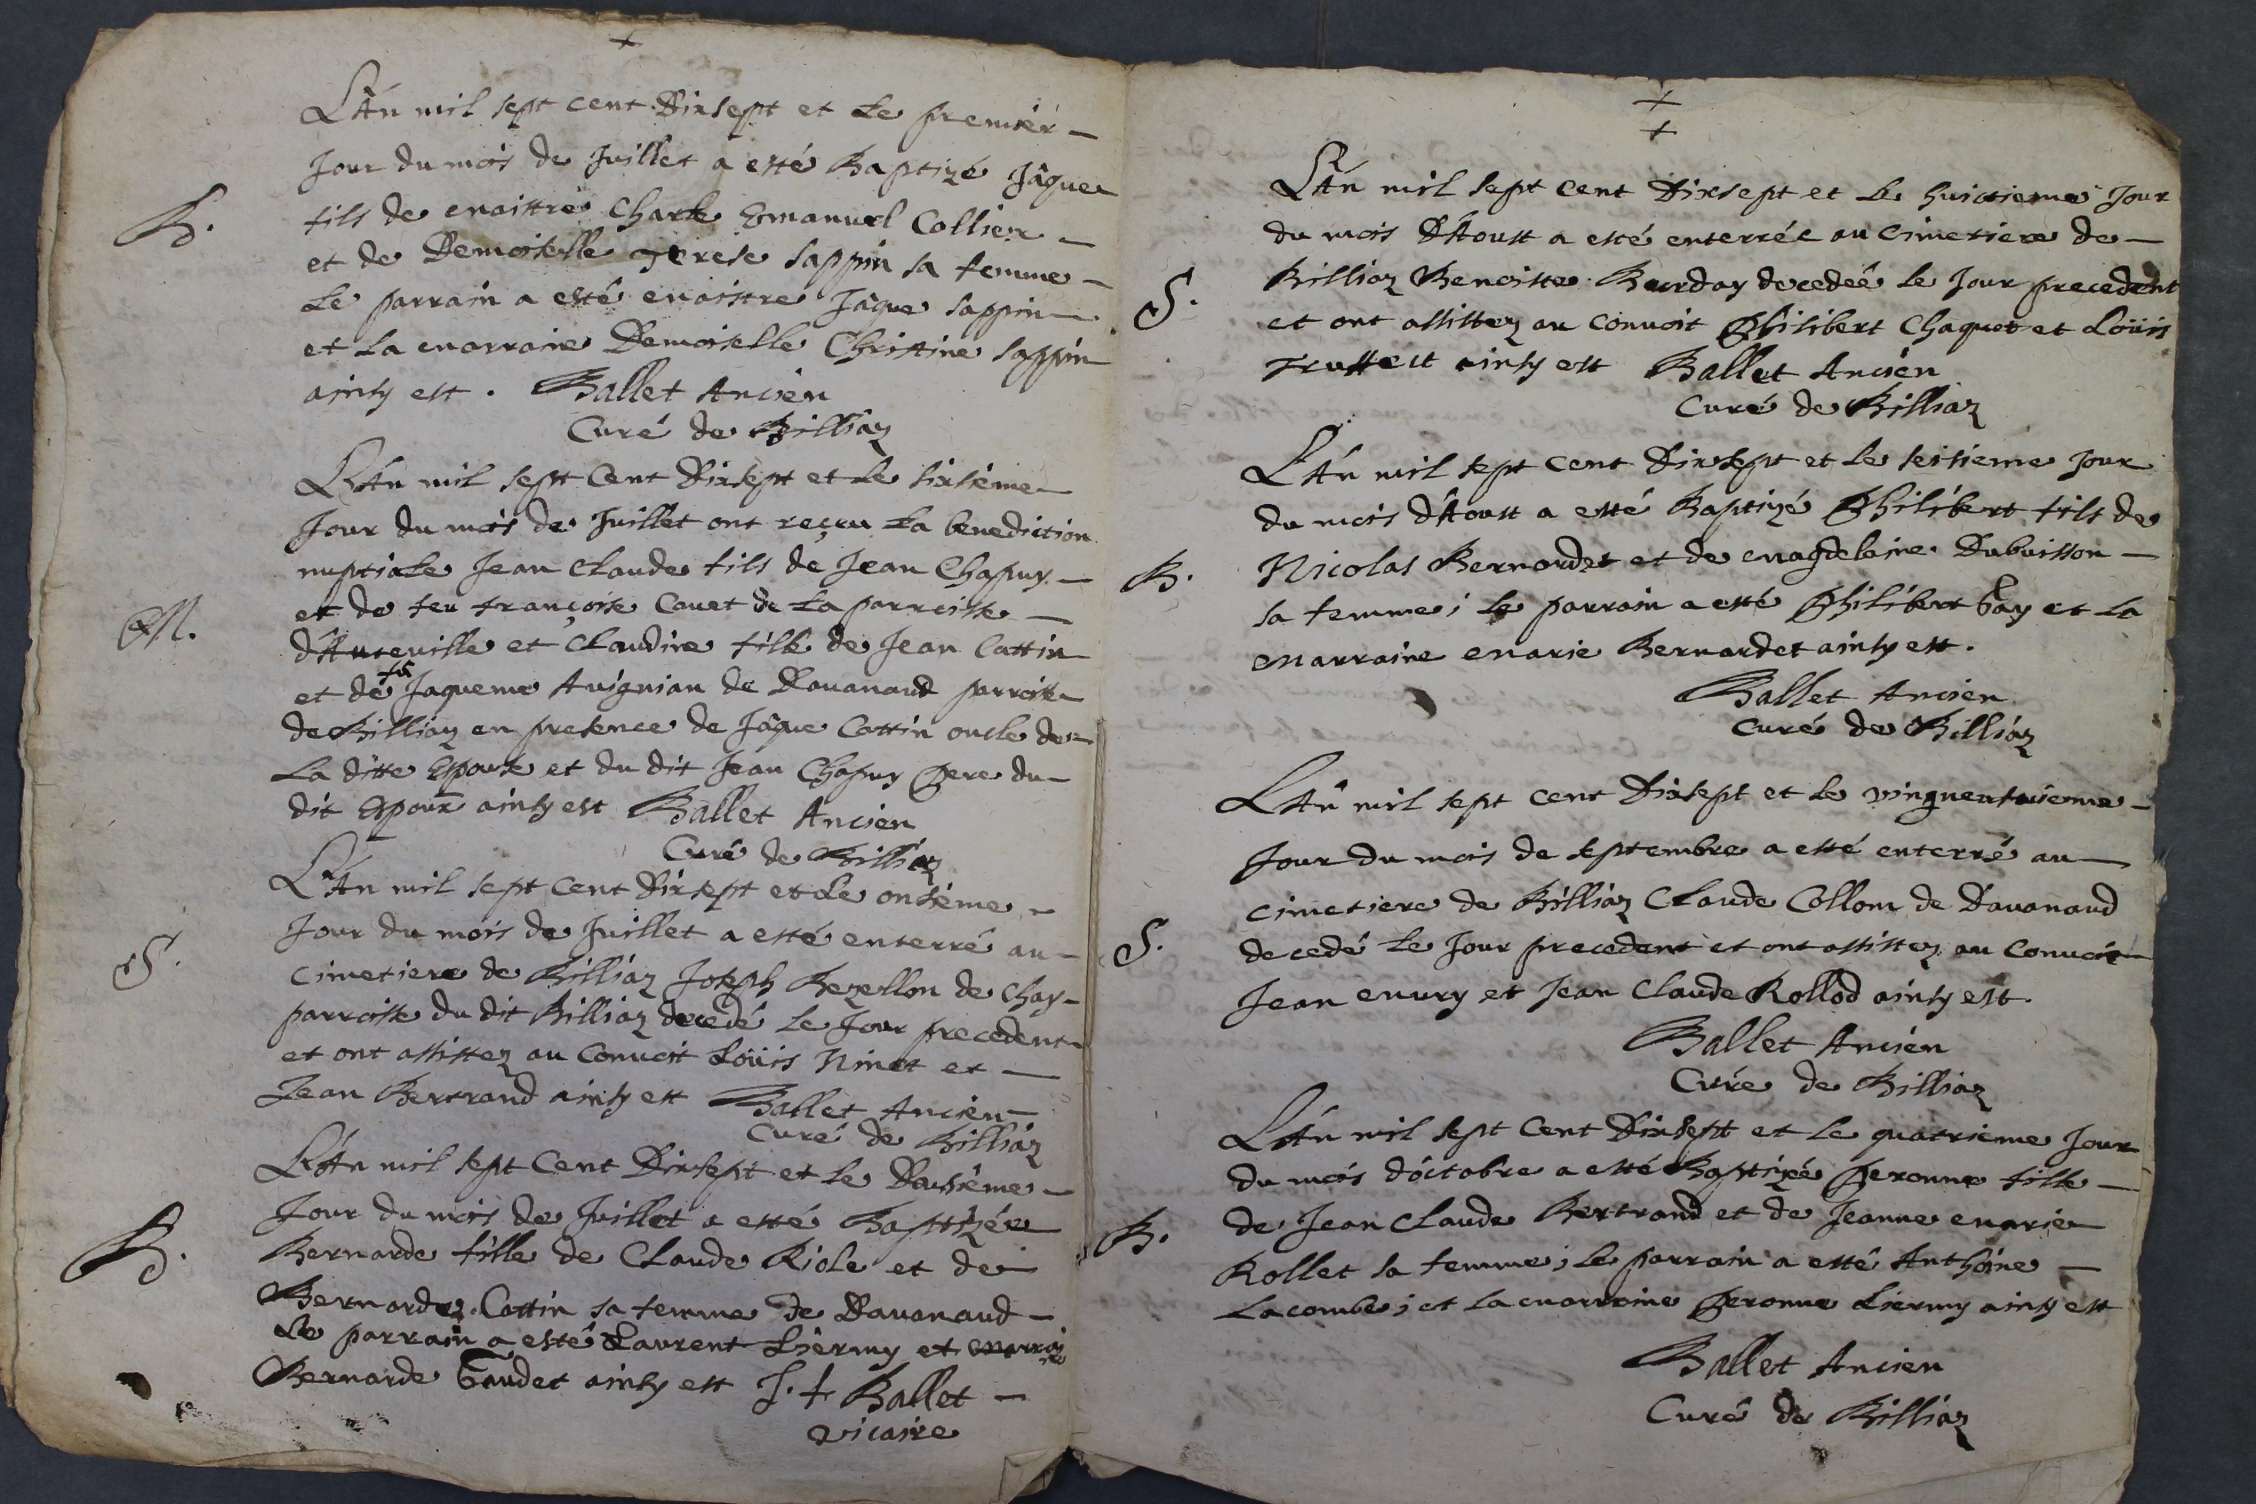 L'An mil sept cent Dixsept et Le premier
Jour du mois de Juillet a esté Baptizé Jâque
B. fils de maistre Charle Emanuel Collier
et de Demoiselle Terese Sappin sa femme
Le parrain a esté maistre Jâque Sappin
et La marraine Demoiselle Christine Sappin
ainsy est. Ballet Ancien
Curé de Billiaz
L'An mil sept Cent Dixsept et Le sixsiéme
Jour du mois de Juillet ont reçeu La benediction
nuptiale Jean Claude fils de Jean Chapuy
M. et de feu françoise Cavet de La parroisse
d'Anteville et Claudine fille de Jean Cattin
et de fe Jaqueme Avignian de Davanaud parroisse
de Billiaz en presence de Jâque Cattin oncle de
La ditte Espouse et du dit Jean Chapuy Pere du
dit Espoux ainsy est Ballet Ancien
Curé de Billiaz
L'An mil sept Cent Dixsept et Le onsiéme
Jour du mois de Juillet a esté enterré au
S. Cimetiere de Billiaz Joseph Bezellon de Chay
parroisse du dit Billiaz decedé Le Jour precedent
et ont assistez au Convoit Loüis Ninet et
Jean Bertrand ainsy est Ballet Ancien
Curé de Billiáz
L'An mil sept Cent Dixsept et Le Dousiéme
Jour du mois de Juillet a esté Baptizée
B. Bernarde fille de Claude Riole et de
Bernarde Cottin sa femme de Davanaud
Le parrain a esté Laurent Liermy et marrai
Bernarde Gaudet ainsy est J. f Ballet
vicaire
L'An mil sept Cent Dixsept et Le huictieme Jour
du mois D'Aoust a esté enterrée au Cimetiere de
S. Billiaz Benoiste Bourday decedeé Le Jour precedent
et ont assistez au Convoit Philibert Chaquet et Loüis
Trussert ainsy est Ballet Ancien
Curé de Billiaz
L'An mil sept Cent Dixsept et Le seisieme Jour
du mois d'Aoust a esté Baptizé Philibert fils de
B. Nicolas Bernardet et de magdelaine Dubuisson
sa femme; Le parrain a esté Philibert Gay et La
marraine marie Bernardet ainsy est.
Ballet Ancien
Curé de Billiáz
L'An mil sept Cent Dixsept et Le vingneufvieme
Jour du mois de septembre a esté enterré au
cimetiere de Billiaz Claude Collom de Davanaud
S. decedé Le Jour precedent et ont assistez au Convoit
Jean mury et Jean Claude Rollod ainsy est.
Ballet Ancien
Curé de Billiaz
L'An mil sept Cent Dixsept et Le quatrieme Jour
du mois d'octobre a esté Baptizeé Peronne fille
B. de Jean Claude Bertrand et de Jeanne marie
Rollet sa femme; Le parrain a esté Anthoine
Lacombe; et La marraine Peronne Liermy ainsy est
Ballet Ancien
Curé de Billiaz